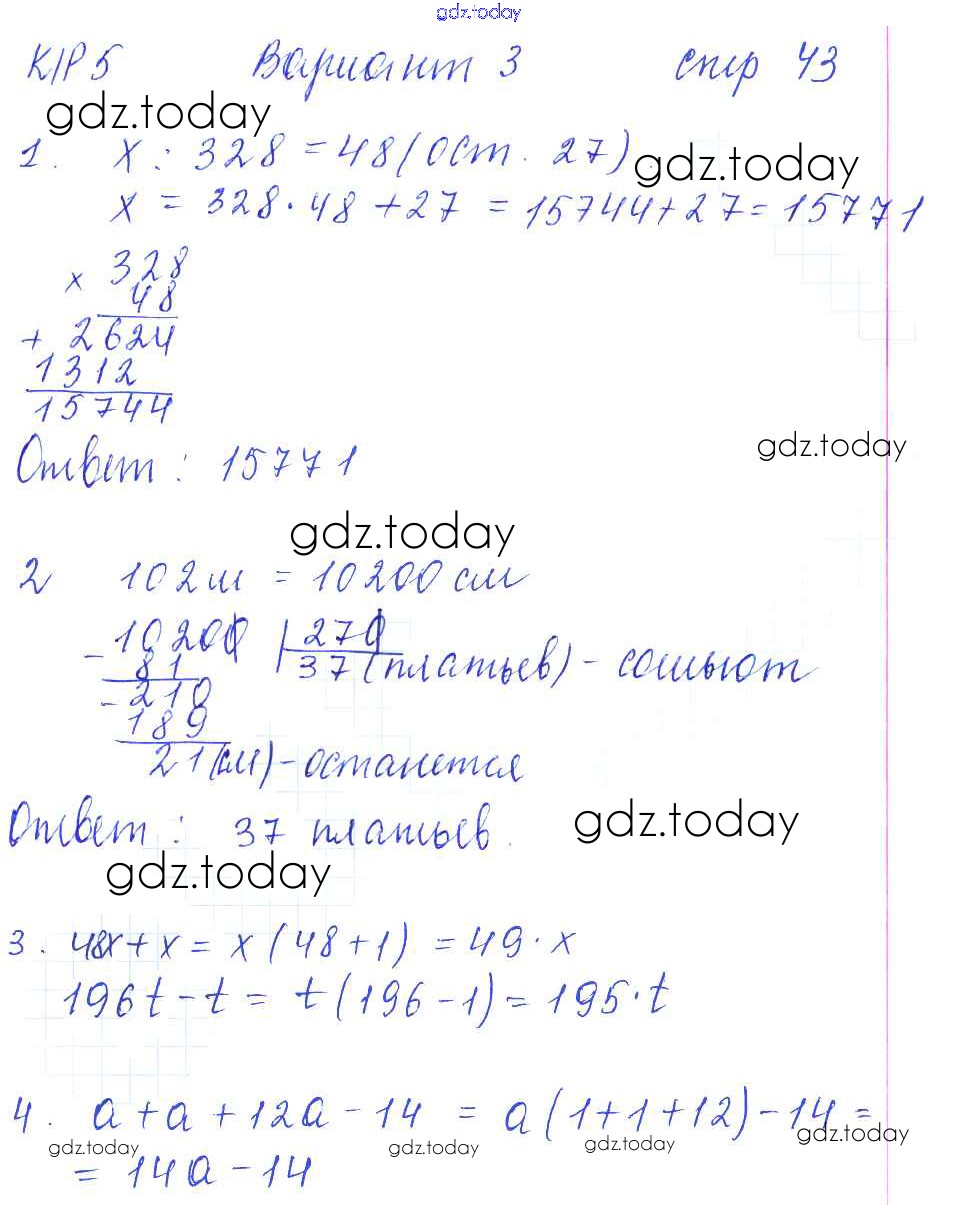 gdz.today
К/Р 5 Вариант 3 стр 43
gdz.today
1. x : 328 = 48 (ост. 27)
gdz.today
x = 328 · 48 + 27 = 15744 + 27 = 15771
x 328
48
+ 2624
1312
15744
gdz.today
Ответ : 15771
gdz.today
2 102 м = 10200 см
- 10200 | 270
81 37 (платьев) - сошьют
- 210
189
21 (см) - останется
Ответ : 37 платьев.
gdz.today
gdz.today
3. 48x + x = x (48 + 1) = 49 · x
196t - t = t (196 - 1) = 195 · t
4. a + a + 12a - 14 = a (1 + 1 + 12) - 14 =
gdz.today gdz.today gdz.today gdz.today
= 14a - 14